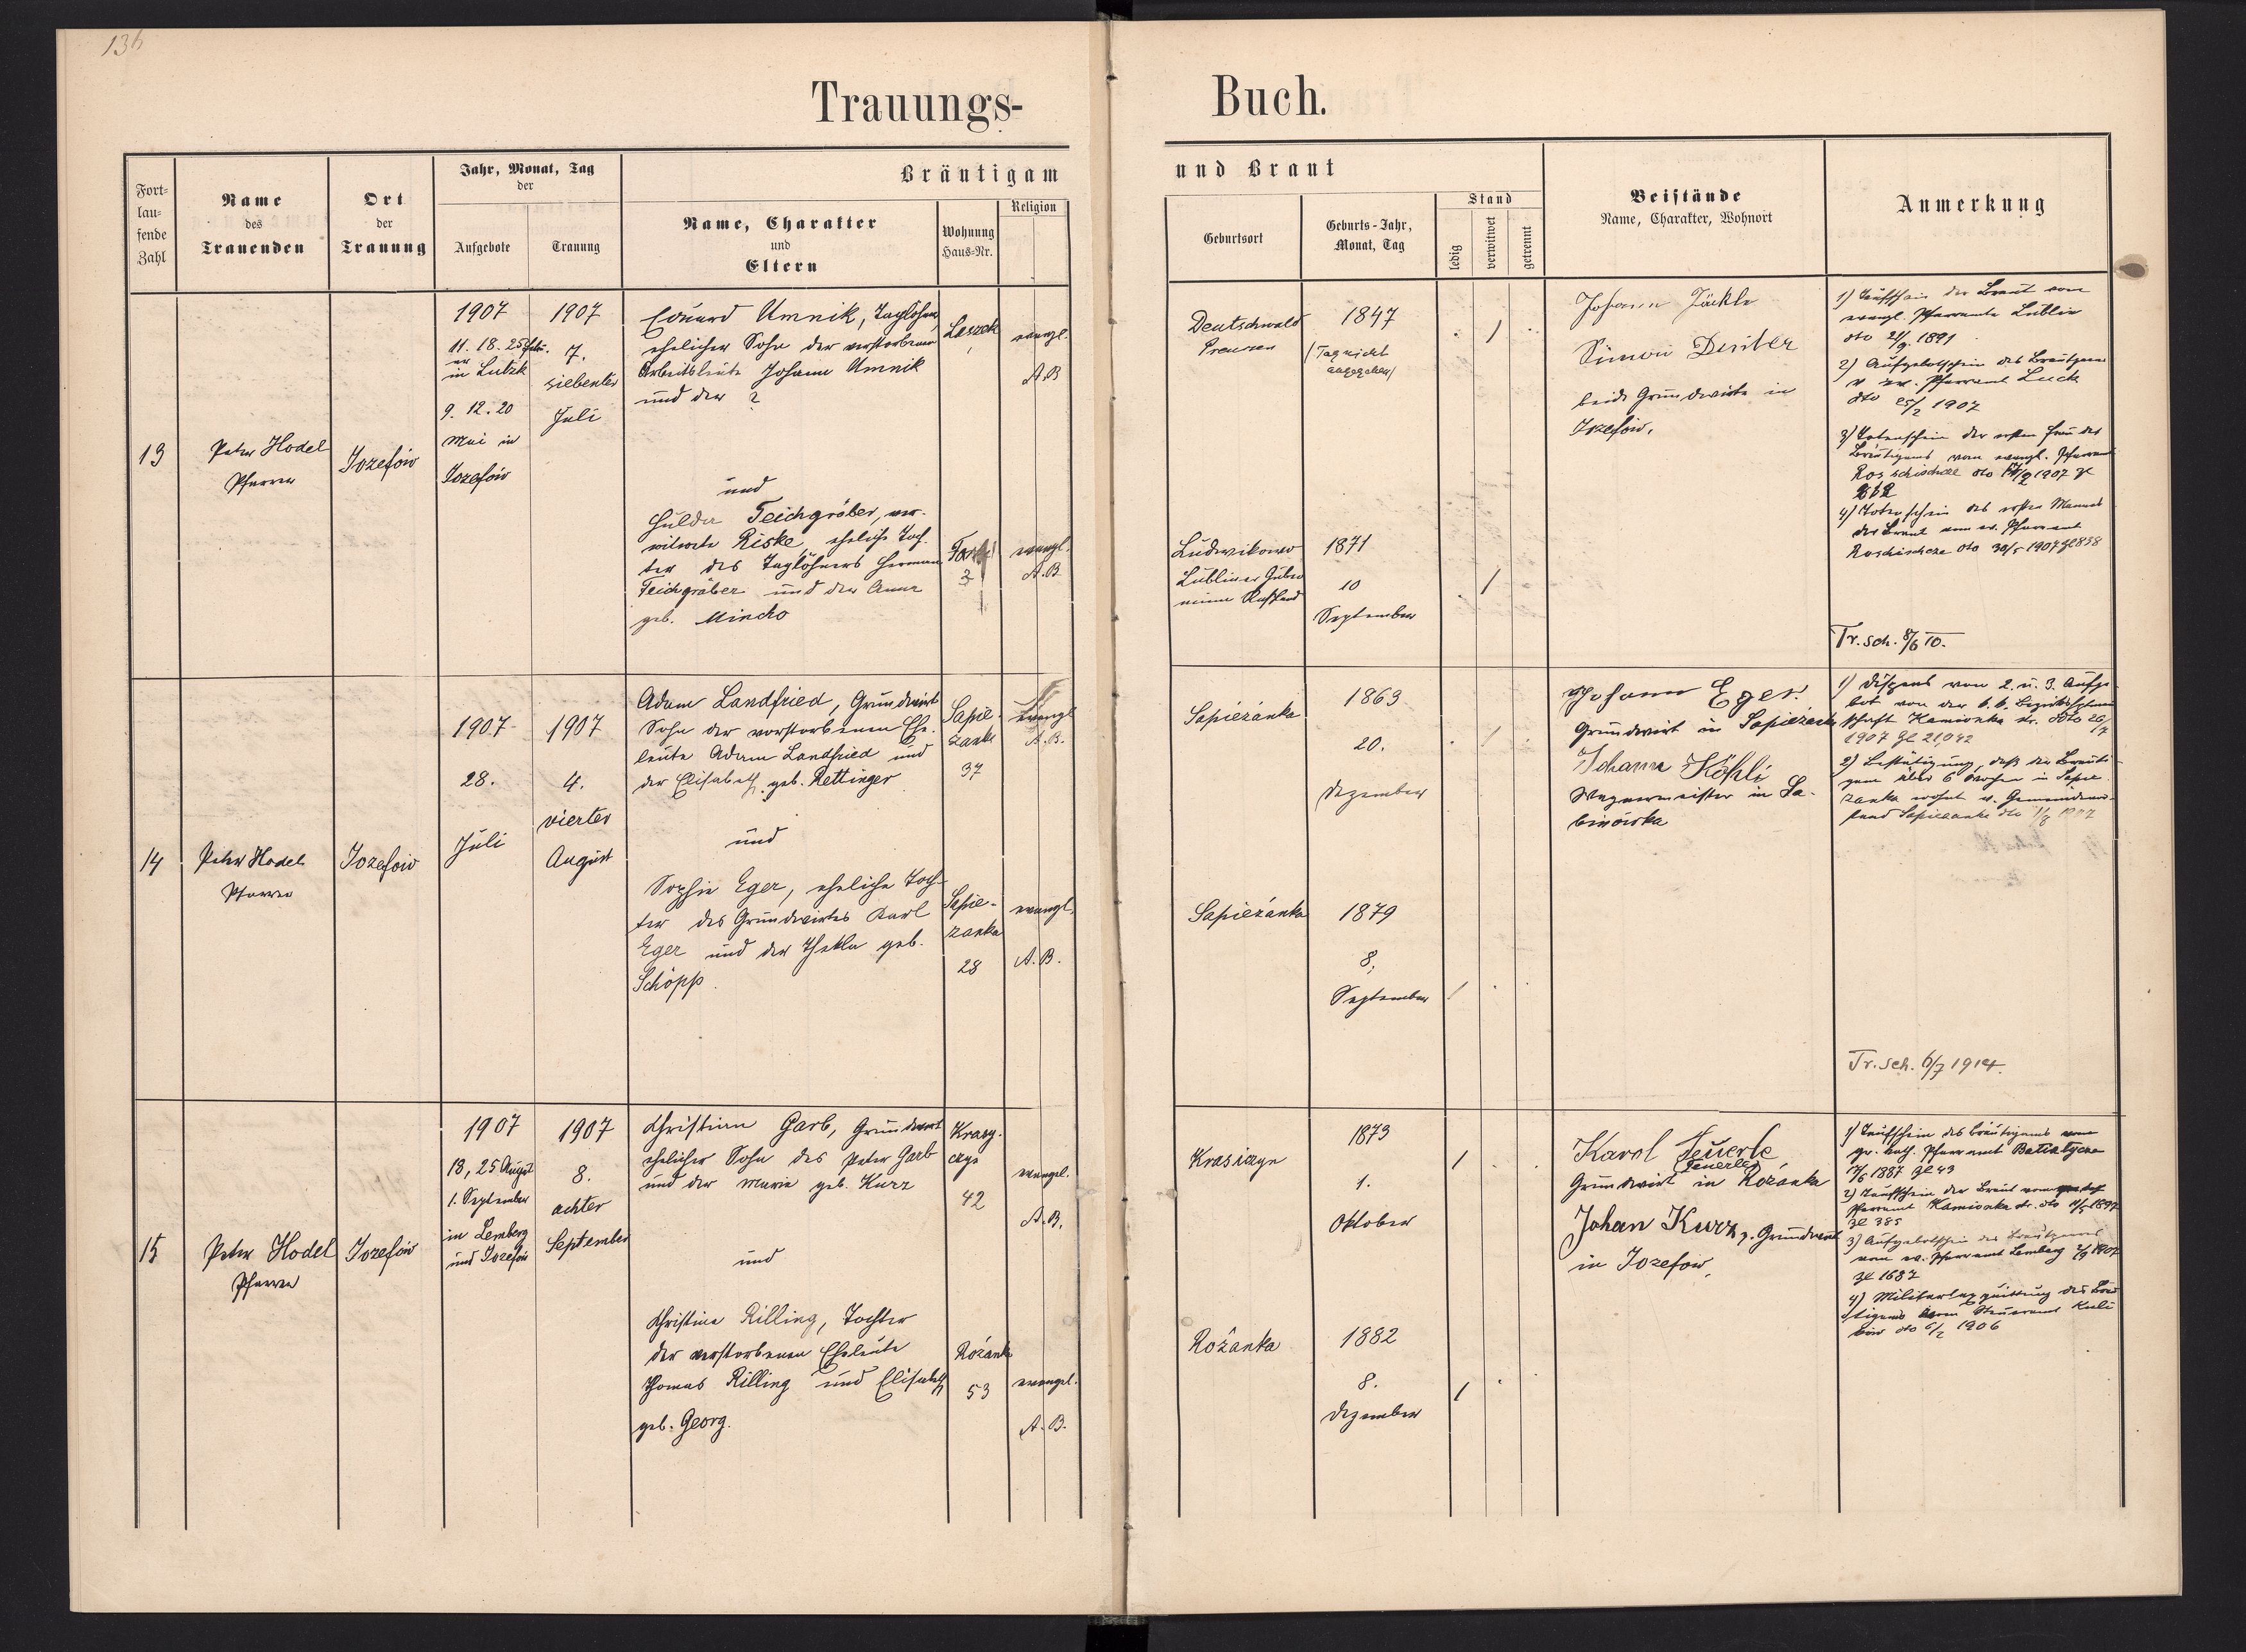 136
Trauungs-
Buch.
Fort-
lau-
fende
Zahl
Name
des
Trauenden
Ort
der
Trauung
Jahr, Monat, Tag
der
Aufgebote
Trauung
Bräutigam
Name, Charakter
und
Eltern
Wohnung
Haus-Nr.
Religion
und Braut
Geburtsort
Geburts-Jahr,
Monat, Tag
Stand
ledig
verwitwet
getrennt
Beistände
Name, Charakter, Wohnort
Anmerkung
13
Peter Hodel
Pfarrer
Jozefów
1907
11. 18. 25 Febr.
in Lutzk
9. 12. 20
Mai in
Jozefów
1907
7.
siebenter
Juli
Eduard Umnik, Taglöhner,
ehelicher Sohn der verstorbenen
Arbeitsleute Johann Umnik
und der ?
und
Hulda Teichgräber, ver-
witwete Riske, eheliche Toch-
ter des Taglöhners Herman
Teichgräber und der Anna
geb. Mincho
Leszek
3
evangl.
A.B
evangl.
A.B
Deutschwald
Preussen
1847
(Tag nicht
angegeben)
Ludwikowo
Lubliner Guber
1871
10
September
Johann Jäckle
Simon
beide Grundwirte in
Jozefów.
1) Taufschein der Braut vom
evangl. Pfarramte Lublin
dto 21/9 1891
2) Aufgebotschein des Bräutigams
v. ev. Pfarramt Luck
dto 25/2 1907
3) Totenschein der ersten Frau des
Bräutigams vom evangl. Pfarramt
4) Totenschein des ersten Mannes
der Braut vom ev. Pfarramt
Roschischcze dto 30/5 1907 Zl 838
Tr. sch. 8/6 10.
14
Peter Hodel
Pfarrer
Jozefów
1907
28.
Juli
1907
4.
vierter
August
Adam Landfried, Grundwirt
Sohn der verstorbenen Ehe-
leute Adam Landfried und
der Elisabeth geb. Rettinger
und
Sophie Eger, eheliche Toch-
ter des Grundwirtes Karl
Eger und der Thekla geb.
Schöpp.
Sapie-
zanka
37
Sapie-
zanka
28
evangl
A.B.
evangl.
A.B.
Sapiezánka
1863
20.
Dezember
Sapiezánka
1879
8.
September
Johann Eger
Grundwirt in Sapiezanka
Johann Köhli
Wagnermeister in Sa-
binówka
1) Dispens von 2. u. 3. Aufge-
bot von der k. k. Bezirkshptman
schaft Kamionka str. ddto 26/7
1907 Zl 21,042
2) Bestätigung, daß der Bräuti-
gam über 6 Wochen in Sapie-
zanka wohnt v. Gemeindevor-
stand Sapiezanka dto 1/8 1907
Tr. sch. 6/7 1914.
15
Peter Hodel
Pfarrer
Jozefów
1907
18, 25 August
1. September
in Lemberg
und Jozefów
1907
8.
achter
September
Christian Garb, Grundwirt
ehelicher Sohn des Peter Garb
und der Maria geb. Kurz
und
Christine Rilling, Tochter
der verstorbenen Eheleute
Thomas Rilling und Elisabeth
geb. Georg.
Krasy-
czyn
42
Rózanka
53
evangel.
A.B.
evangel.
A.B.
Krasiczyn
1873
1.
Oktober
Rožanka
1882
8.
Dezember
Karol Feuerle
(Feuerle)
Grundwirt in Rózanka
Johan Kurz, Grundwirt
in Jozefow.
1) Taufschein des Bräutigams vom
gr. kath. Pfarramt Batiatycze
17/6 1887 Zl 43
2) Taufschein der Braut vom
Pfarramt Kamionka str. dto 11/5 1897
Zl 385
3) Aufgebotschein des Bräutigams
vom ev. Pfarramt Lemberg 2/9 1907
Zl 1687
4) Militärtaxquittung des Bräu
tigams vom Steueramt Kuli
ków dto 6/2 1906